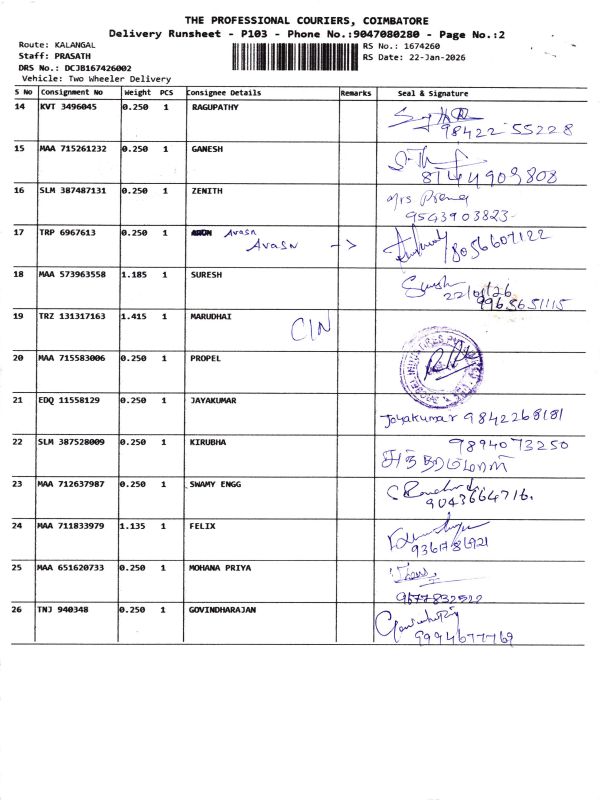 THE PROFESSIONAL COURIERS, COIMBATORE
Delivery Runsheet - P103 - Phone No.:9047080280 - Page No.:2
Route: KALANGAL
Staff: PRASATH
DRS No.: DCJB167426002
Vehicle: Two Wheeler Delivery
RS No.: 1674260
RS Date: 22-Jan-2026
S No Consignment No Weight PCS Consignee Details Remarks Seal & Signature
14 KVT 3496045 0.250 1 RAGUPATHY
98422 55228
15 MAA 715261232 0.250 1 GANESH
8144903808
16 SLM 387487131 0.250 1 ZENITH
Mrs Prema
9543903823
17 TRP 6967613 0.250 1 Avasn
Avasn -> 8056607122
18 MAA 573963558 1.185 1 SURESH
Suresh
22/01/26
9965651115
19 TRZ 131317163 1.415 1 MARUDHAI
C/N
20 MAA 715583006 0.250 1 PROPEL
21 EDQ 11558129 0.250 1 JAYAKUMAR
Jayakumar 9842268181
22 SLM 387528009 0.250 1 KIRUBHA
9894073250
23 MAA 712637987 0.250 1 SWAMY ENGG
9043664716.
24 MAA 711833979 1.135 1 FELIX
9361786921
25 MAA 651620733 0.250 1 MOHANA PRIYA
9677832522
26 TNJ 940348 0.250 1 GOVINDHARAJAN
9994677769